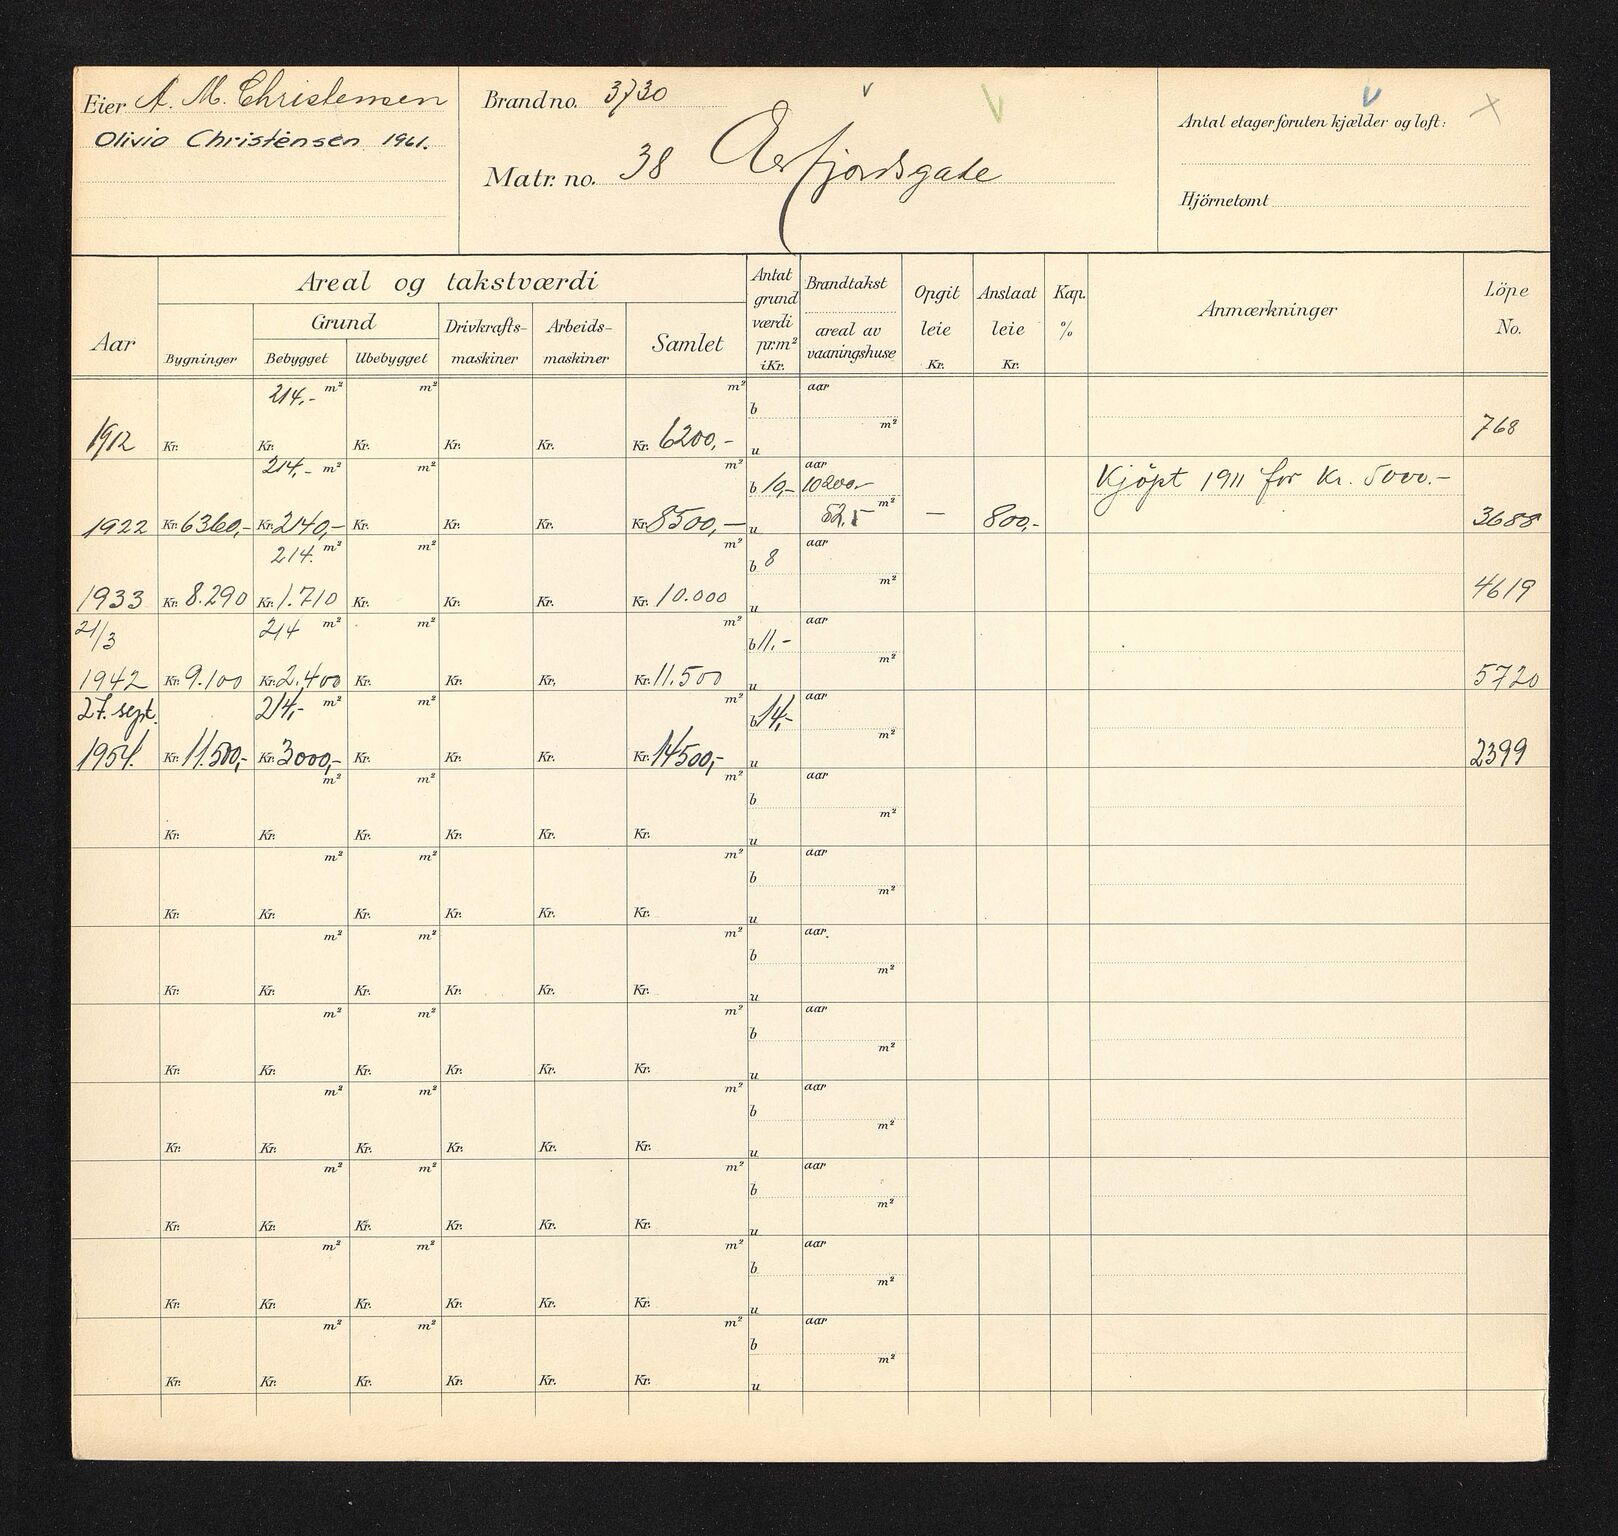 Eier A. M. Christensen
Olivia Christensen 1961.
Brand no. 3730
Matr. no. 38
Antal etager foruten kjælder og loft:
Hjörnetomt
Aar
Areal og takstværdi
Bygninger
Grund
Bebygget Ubebygget
Drivkrafts-
maskiner
Arbeids-
maskiner
Samlet
Antat
grund
værdi
pr. m²
i Kr.
Brandtakst
areal av
vaaningshuse
Opgit
leie
Kr.
Anslaat
leie
Kr.
Kap.
%
Anmærkninger
Löpe
No.
214,- m² m² m² aar
b
m²
1912 Kr. Kr. Kr. Kr. Kr. Kr. 6200,- u 768
214,- m² m² m² aar
b 10,- 10200,- Kjöpt 1911 for Kr. 5000.-
m²
1922 Kr. 6360,- Kr. 2140,- Kr. Kr. Kr. Kr. 8500,- u — 800,- 3688
214. m² m² m² aar
b 8
m²
1933 Kr. 8.290 Kr. 1.710 Kr. Kr. Kr. Kr. 10.000 u 4619
21/3 214 m² m² m² aar
b 11,-
m²
1942 Kr. 9.100 Kr. 2.400 Kr. Kr. Kr. Kr. 11.500 u 5720
27. sept. 214,- m² m² m² aar
b 14,-
m²
1954. Kr. 11.500,- Kr. 3000,- Kr. Kr. Kr. Kr. 14500,- u 2399
m² m² m² aar
b
m²
Kr. Kr. Kr. Kr. Kr. Kr. u
m² m² m² aar
b
m²
Kr. Kr. Kr. Kr. Kr. Kr. u
m² m² m² aar.
b
m²
Kr. Kr. Kr. Kr. Kr. Kr. u
m² m² m² aar
b
m²
Kr. Kr. Kr. Kr. Kr. Kr. u
m² m² m² aar
b
m²
Kr. Kr. Kr. Kr. Kr. Kr. u
m² m² m² aar
b
m²
Kr. Kr. Kr. Kr. Kr. Kr. u
m² m² m² aar
b
m²
Kr. Kr. Kr. Kr. Kr. Kr. u
m² m² m² aar
b
m²
Kr. Kr. Kr. Kr. Kr. Kr. u